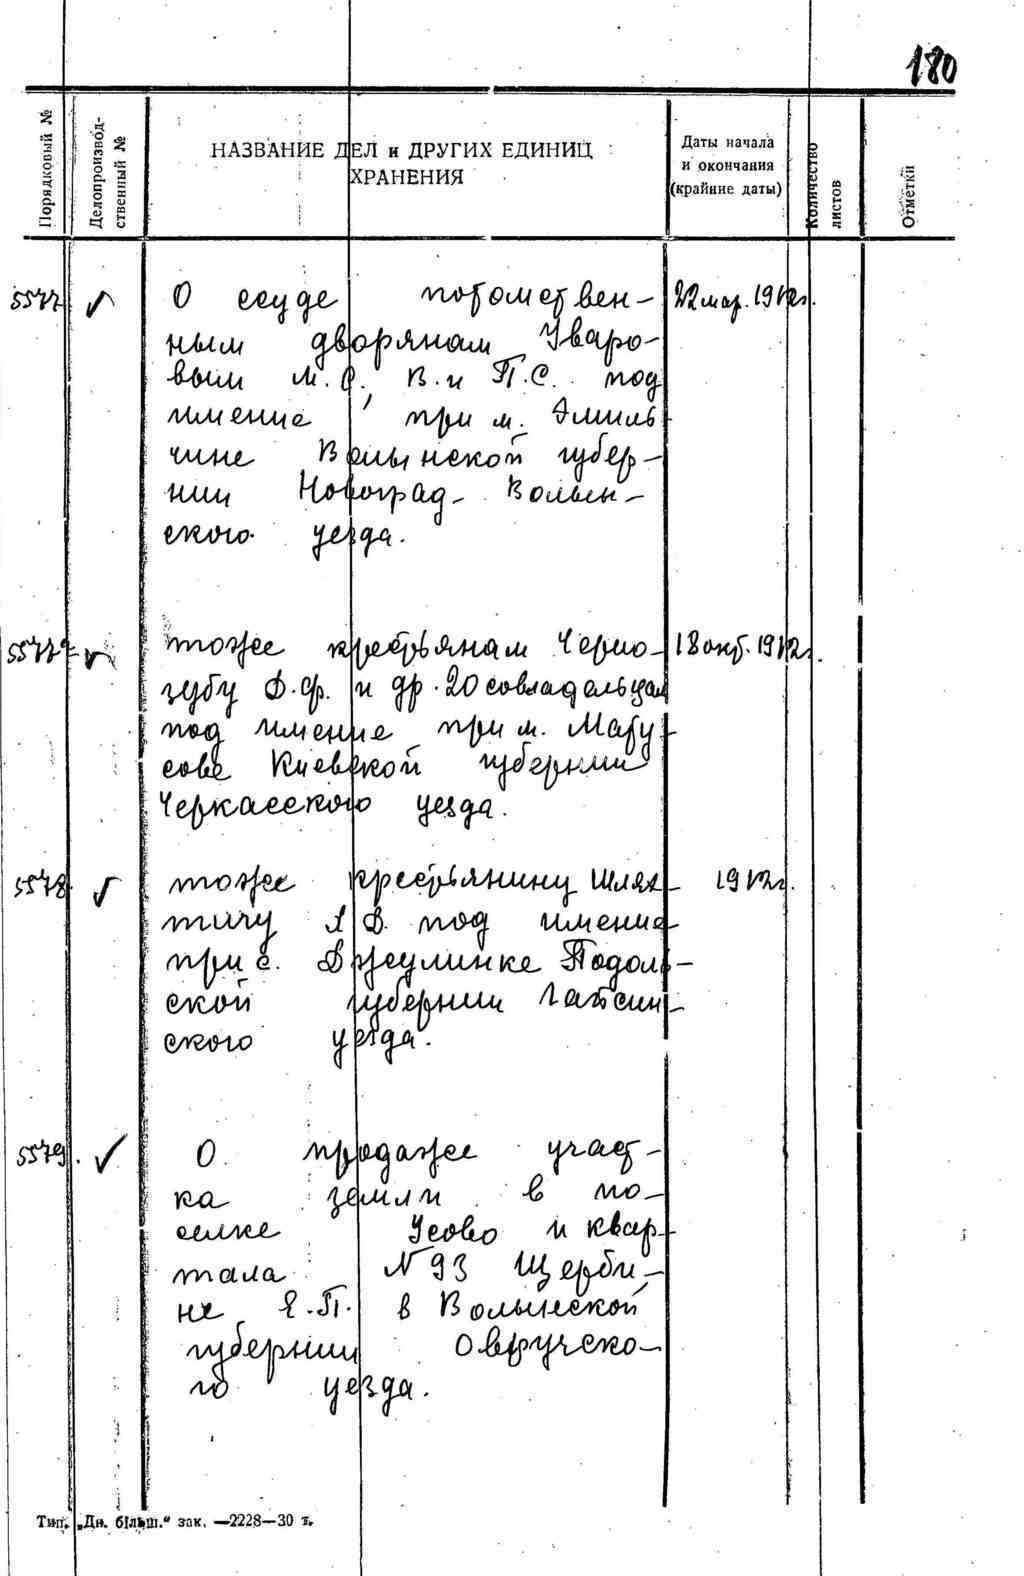 180
Порядковый №
Делопроизвод-
ственный №
НАЗВАНИЕ ДЕЛ и ДРУГИХ ЕДИНИЦ
ХРАНЕНИЯ
Даты начала
и окончания
(крайние даты)
Количество
листов
Отметки
5577 ✓ О ссуде потомствен- 22 мар. 1912 г.
ным дворянам Уваро-
вым М.С., В. и П.С. под
имение при м. Эмиль
чине Волынской губер-
нии Новоград-Волын-
ского уезда.
5577а ✓ тоже крестьянам Черно- 18 окт. 1912 г.
зубу Ф.Ф. и др. 20 совладельцам
под имение при м. Мату
сове Киевской губернии
Черкасского уезда.
5578 ✓ тоже крестьянину Шлях- 1912 г.
тичу А.Д. под имение
при с. Джулинке Подоль-
ской губернии Гайсин-
ского уезда.
5579. ✓ О продаже участ-
ка земли в по-
селке Усово и квар-
тала № 93 Щерби-
не Е.П. в Волынской
губернии Овручско-
го уезда.
Тип. „Дн. більш.“ зак. —2228—30 т.